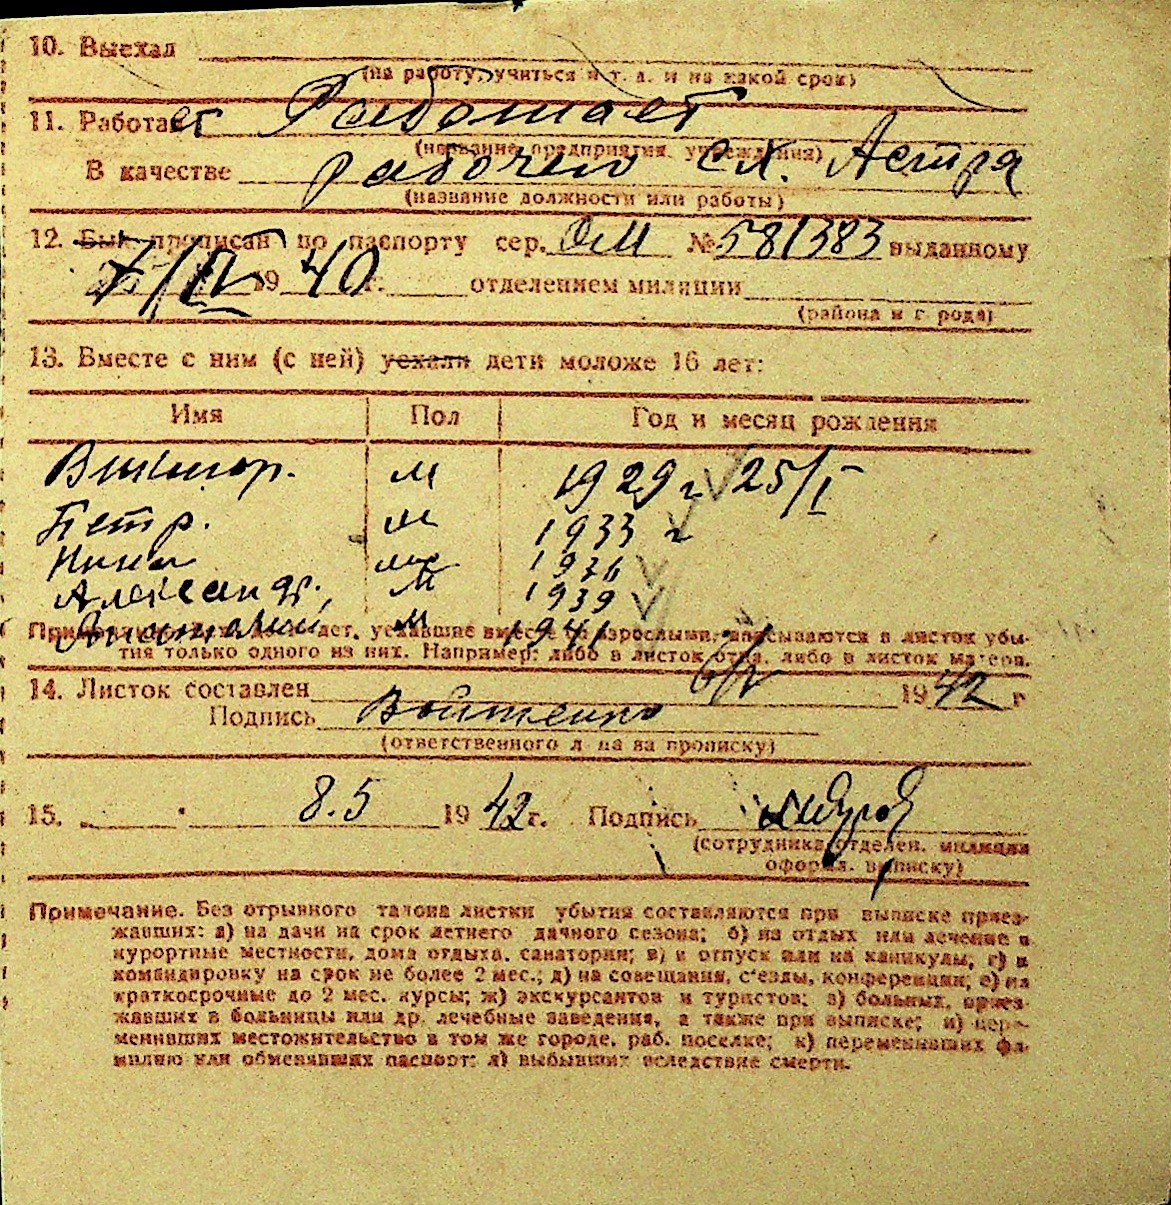 10. Выехал
(на работу, учиться и т. д. и на какой срок)
11. Работает Работает
(название предприятия, учреждения)
В качестве рабочего с.х. Астра
(название должности или работы)
12. Был прописан по паспорту сер. ОМ № 581383 выданному
/IV 1940 г. отделением милиции
(района и города)
13. Вместе с ним (с ней) уехали дети моложе 16 лет:
Имя Пол Год и месяц рождения
Виктор. м 1929 г 25/I
Петр. м 1933 г
Нина 1936
Александр. м 1939
Анатолий м 1941
дет. уехавшие вместе со взрослыми, вписываются в листок убы-
тия только одного из них. Например: либо в листок отца, либо в листок матери.
14. Листок составлен 6/V 1942 г
Подпись Войтенко
(ответственного л на за прописку)
15. 8.5 1942 г. Подпись
(сотрудника отделен. милиции
оформл. выписку)
Примечание. Без отрывного талона листки убытия составляются при выписке приез-
жавших: а) на дачи на срок летнего дачного сезона; б) на отдых или лечение в
курортные местности, дома отдыха, санатории; в) в отпуск или на каникулы; г) в
командировку на срок не более 2 мес.; д) на совещания, с'езды, конференции; е) на
краткосрочные до 2 мес. курсы; ж) экскурсантов и туристов; з) больных, приез-
жавших в больницы или др. лечебные заведения, а также при выписке; и) пере-
менивших местожительство в том же городе, раб. поселке; к) переменивших фа-
милию или обменявших паспорт; л) выбывших вследствие смерти.